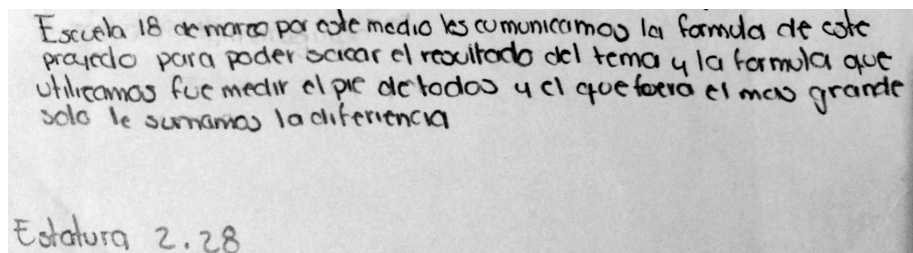 Escuela 18 de marzo por este medio les comunicamos la formula de este
proyecto para poder sacar el resultado del tema y la formula que
utilizamos fue medir el pie de todos y el que fuera el mas grande
solo le sumamos la diferencia
Estatura 2.28